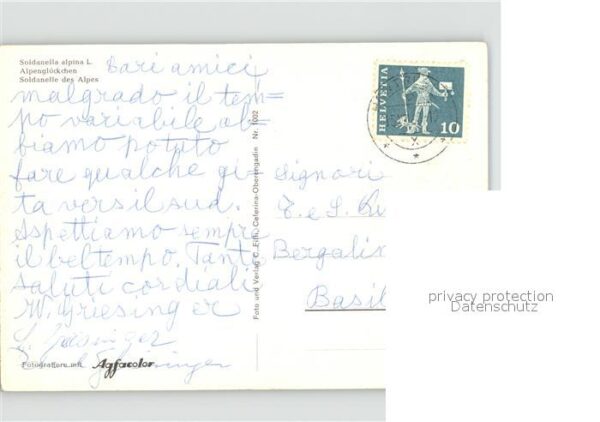 Soldanella alpina L.
Alpenglöckchen
Soldanelle des Alpes
Cari amici
malgrado il tem=
po variabile ab=
biamo potuto
fare qualche gi=
ta verso il sud.
Aspettiamo sempre
il bel tempo. Tanti
saluti cordiali
W. Griesinger
Fotografiere mit Agfacolor
Foto und Verlag Celerina-Oberengadin Nr. 1002
HELVETIA
10
Signori
T. e S.
Basil
privacy protection
Datenschutz